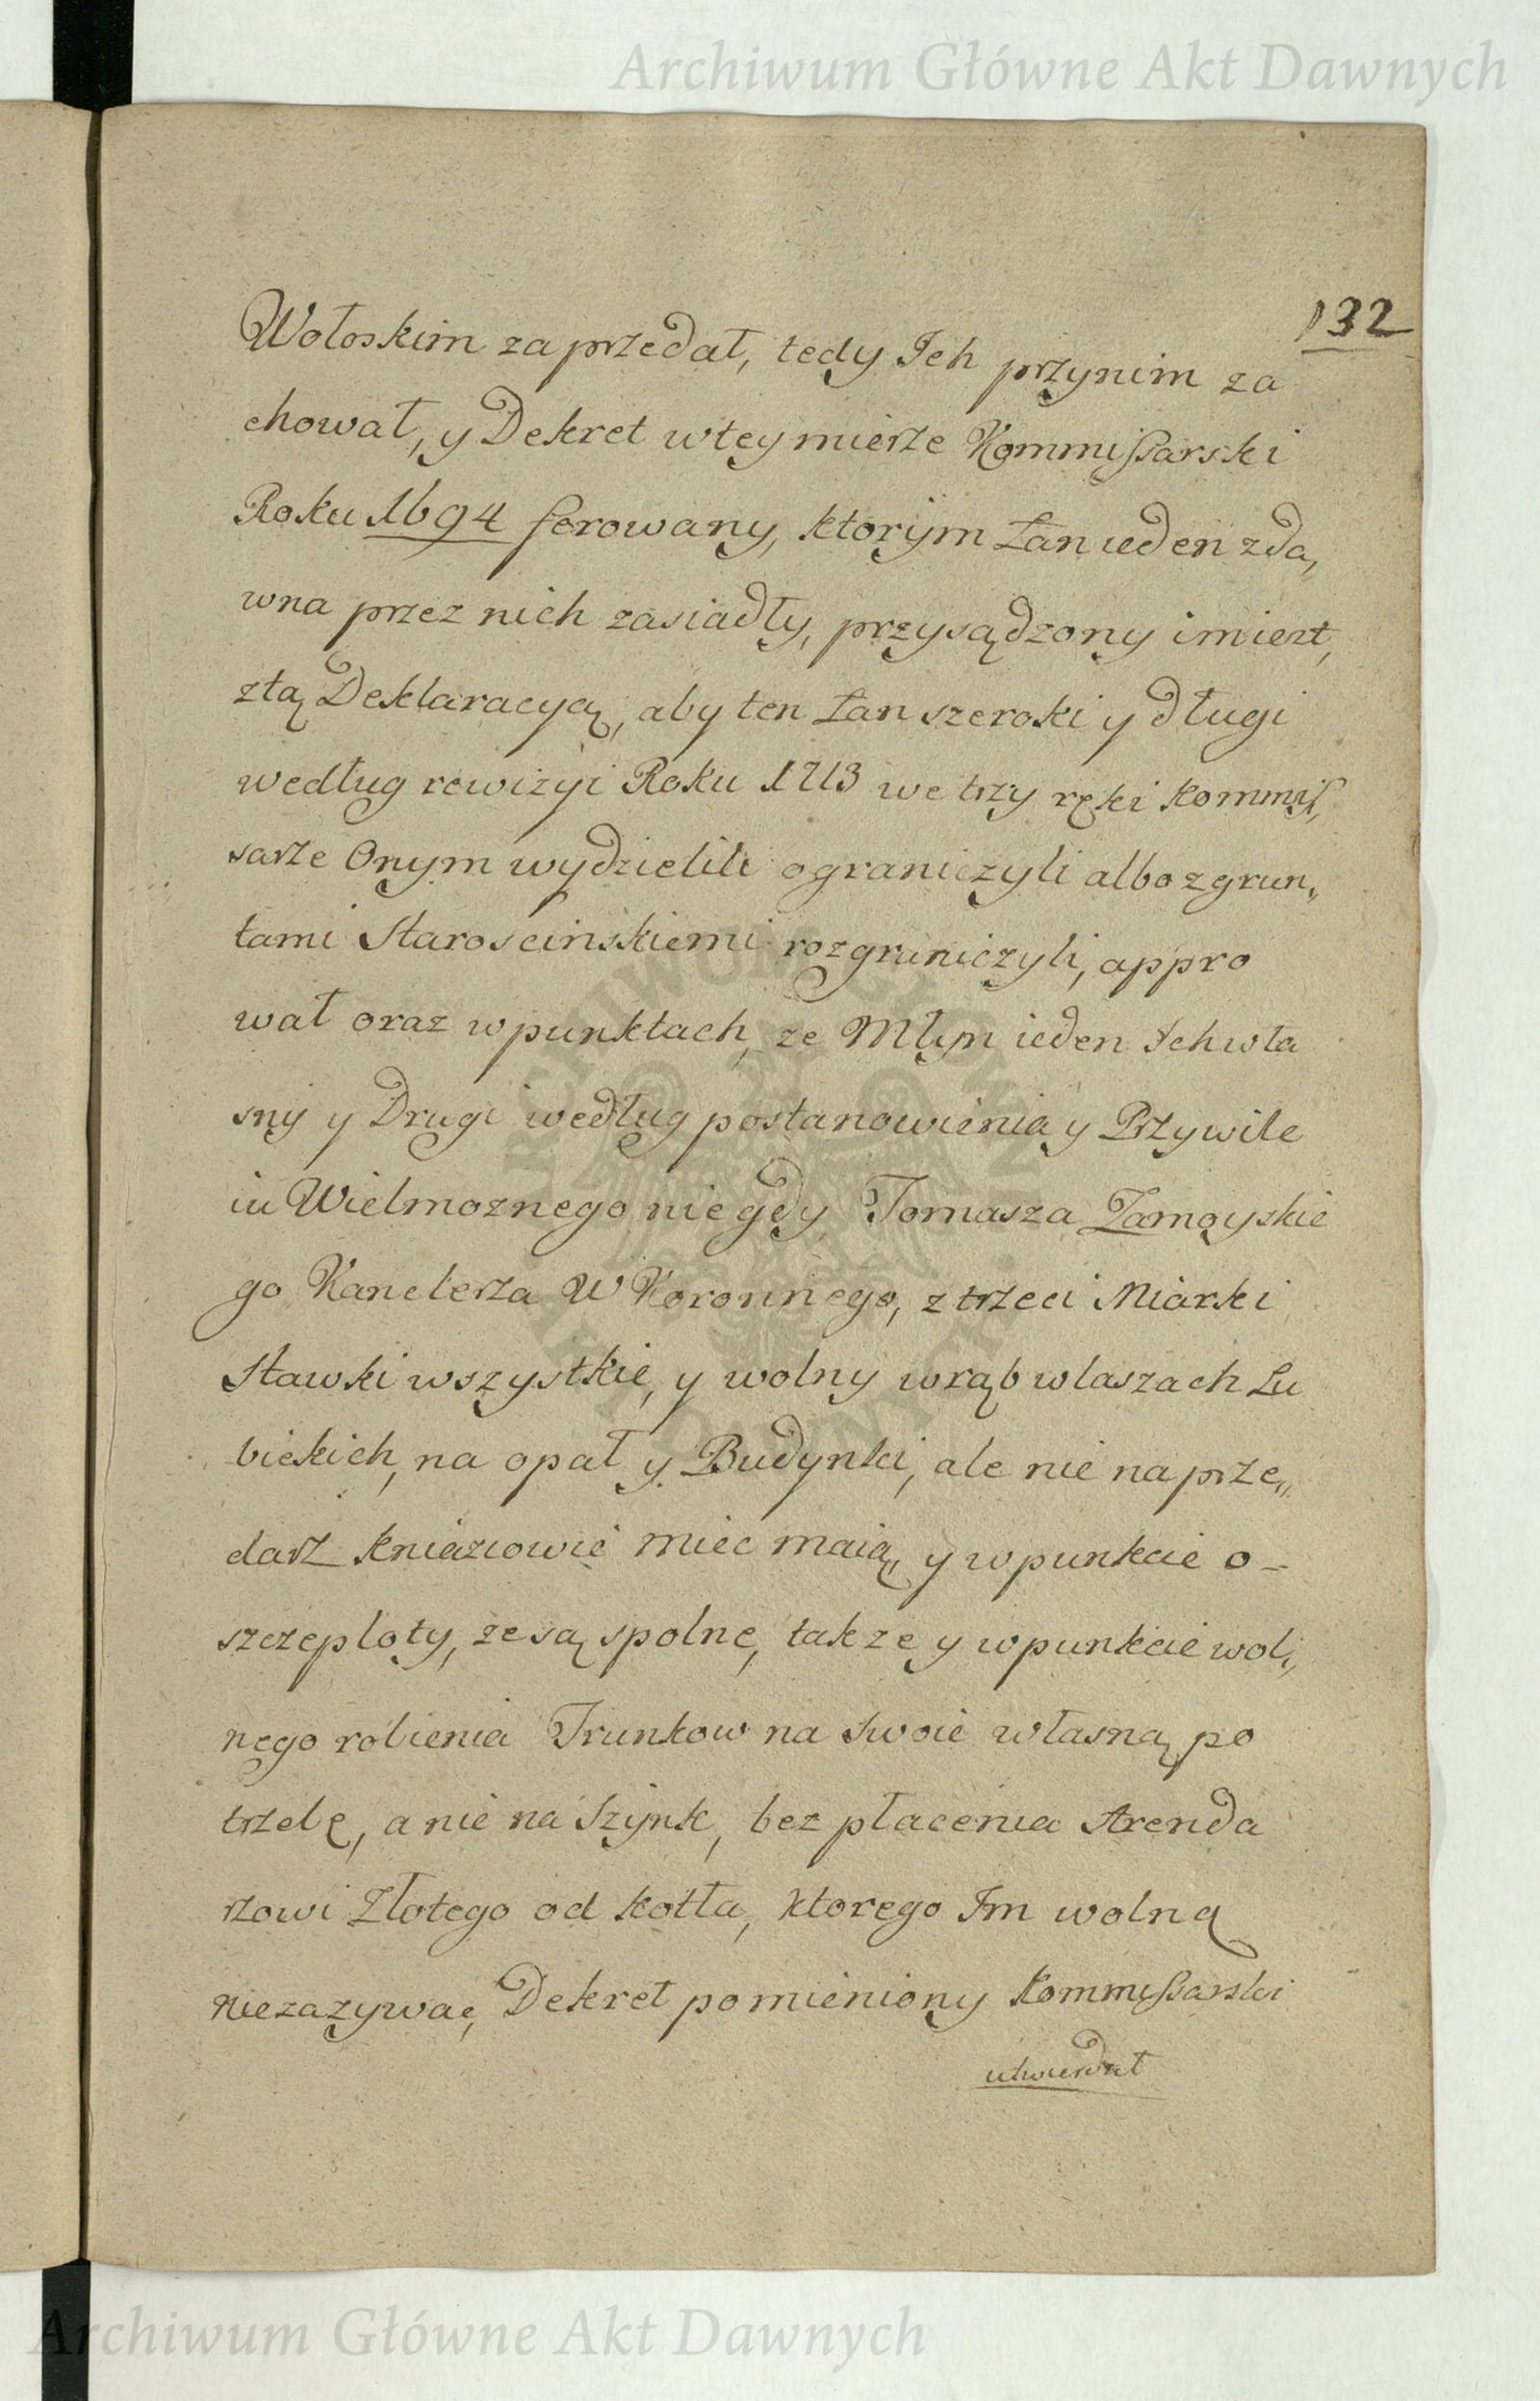 Archiwum Główne Akt Dawnych
132
Wołoskim zaprzedał, tedy Ich przynim za
chował, y Dekret wtey mierze Kommissarski
Roku 1694 ferowany, ktorym Łan ieden zda„
wna przez nich zasiadły, przysądzony imiezt,
ztą Deklaracyą, aby ten Łan szeroki y długi
według rewizyi Roku 1713 we trzy ręki Kommis„
sarze Onym wydzielili ograniczyli albo zgrun„
tami Staroscinskiemi rozgraniczyli, appro
wał oraz wpunktach, ze Młyn ieden Ichwła
sny y Drugi według postanowienia y Przywile
iu Wielmoznego niegdy Tomasza Zamoyskie
go Kanclerza W Koronnego, ztrzeci Miarki
Stawki wszystkie, y wolny wrąb wlaszach Lu
bickich, na opał y Budynki, ale nie na prze„
darz kniaziowie miec maią, y wpunkcie o-
szczeploty, ze są spolne, takze y wpunkcie wol„
nego robienia Trunkow na swoie własną po
trzebę, a nie na Szynk, bez płacenia Arenda
rzowi Złotego od kotła, ktorego Im wolną
niezazywac, Dekret pomieniony Kommissarski
utwierdzał
Archiwum Główne Akt Dawnych